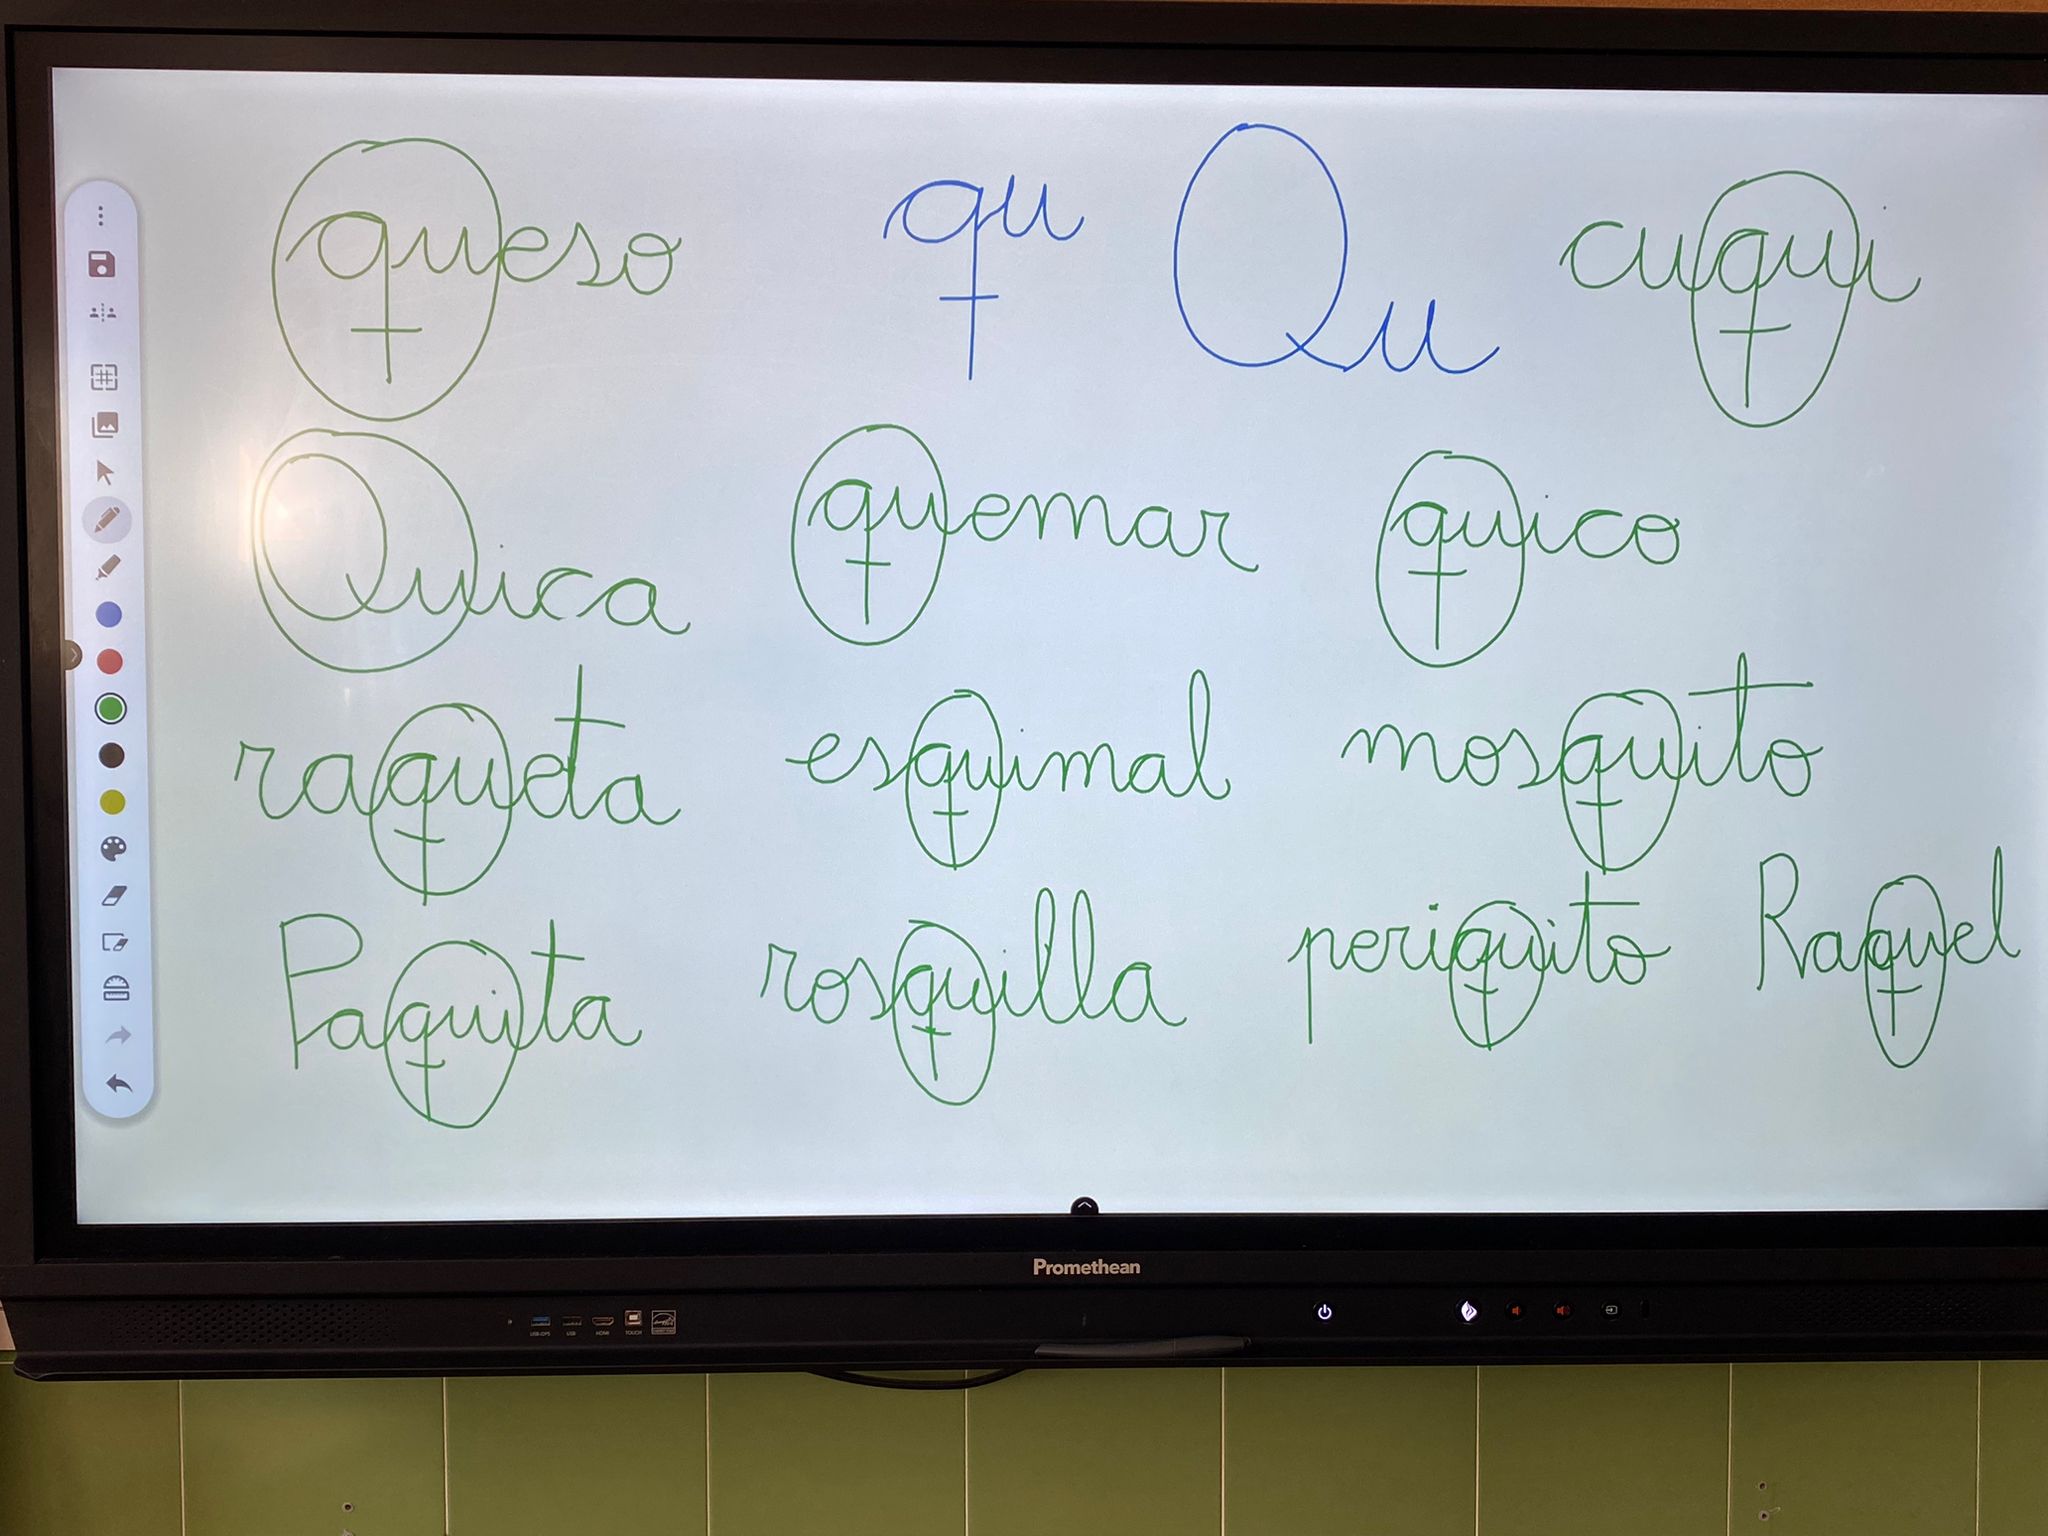 queso qu Qu cuqui
Quica quemar quico
raqueta esquimal mosquito
Paquita rosquilla periquito Raquel
Promethean
USB-OPS USB HDMI TOUCH